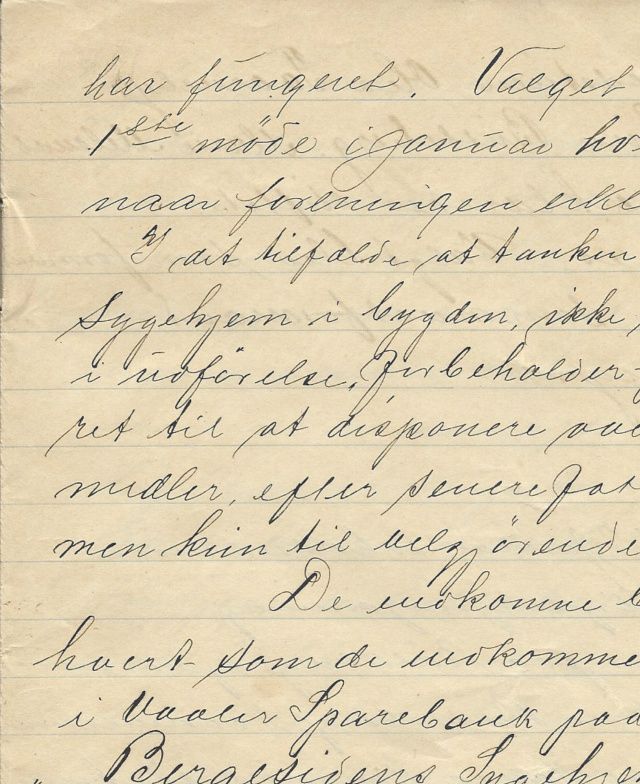 har fungeret. Valget
1ste möde i Januar
naar foreningen
I det tilfælde at tanken
sygehjem i bygden, ikke
i udförelse, forbeholder
ret til at disponere
midler, efter senere
men kun til velgjörende
De indkomne
hvert som de indkomme
i Vaaler Sparebank paa
Bergesidens